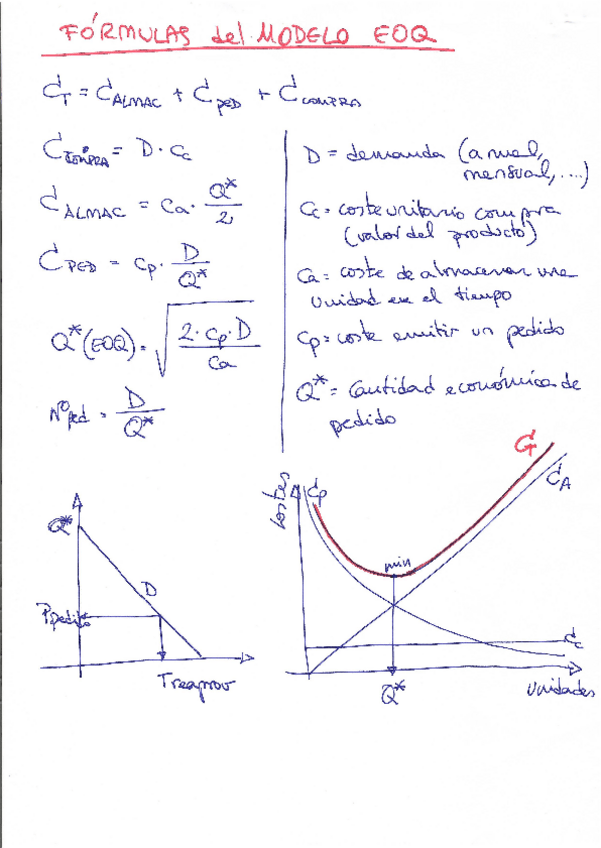 FÓRMULAS del MODELO EOQ
C_T = C_ALMAC + C_PED + C_COMPRA
C_COMPRA = D · Cc
C_ALMAC = Ca · Q*/2
C_PED = Cp · D/Q*
Q*(EOQ) = √(2·Cp·D/Ca)
Nº ped = D/Q*
D = demanda (anual,
mensual, ...)
Cc = coste unitario compra
(valor del producto)
Ca = coste de almacenar una
unidad en el tiempo
Cp = coste emitir un pedido
Q* = Cantidad económica de
pedido
Q*
D
Ppedido
Treaprov
Costes
Cp
CT
CA
min
Cc
Q*
Unidades